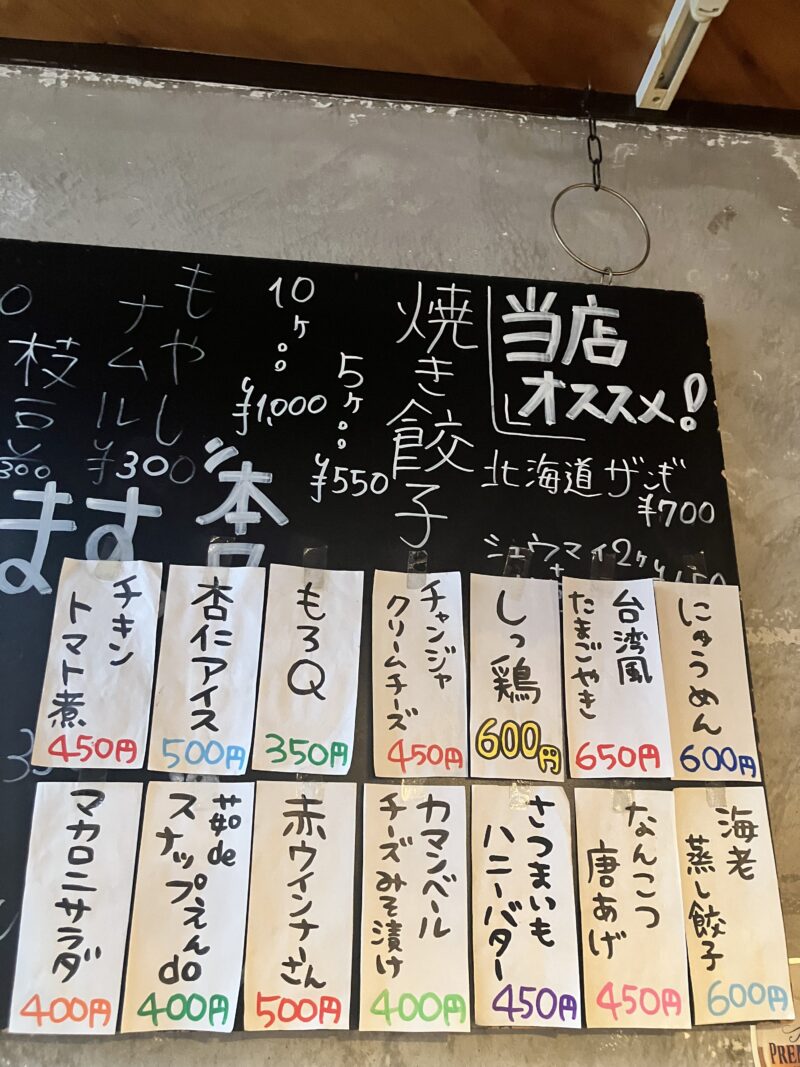 当店
オススメ!
北海道ザンギ
¥700
シュウマイ2ヶ
焼き餃子
5ヶ。。
¥550
10ヶ。。
¥1,000
もやし
ナムル
¥300
枝豆
¥300
本日
ます
にゅうめん
600円
台湾風
たまごやき
650円
しっ鶏
600円
チャンジャ
クリームチーズ
450円
もろQ
350円
杏仁アイス
500円
チキン
トマト煮
450円
海老
蒸し餃子
600円
なんこつ
唐あげ
450円
さつまいも
ハニーバター
450円
カマンベール
チーズみそ漬け
400円
赤ウインナーさん
500円
茹de
スナップえんdo
400円
マカロニサラダ
400円